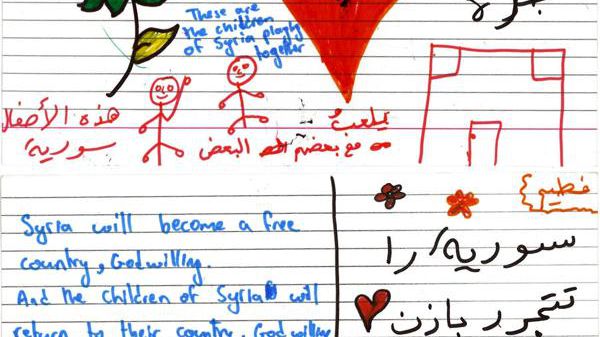 These are
the children
of Syria playing
together
هذه الأطفال
يلعبو
سورية
مع بعضهم البعض
Syria will become a free
country, God willing.
And the children of Syria will
return to their country, God willing
سورية را
تتحرر باذن